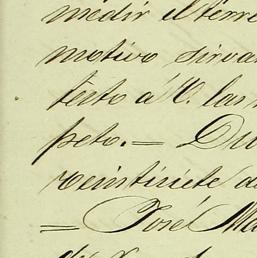 medir el terre
motivo sirva
texto á V. las
peto.=
veintisiete de
= José Ma